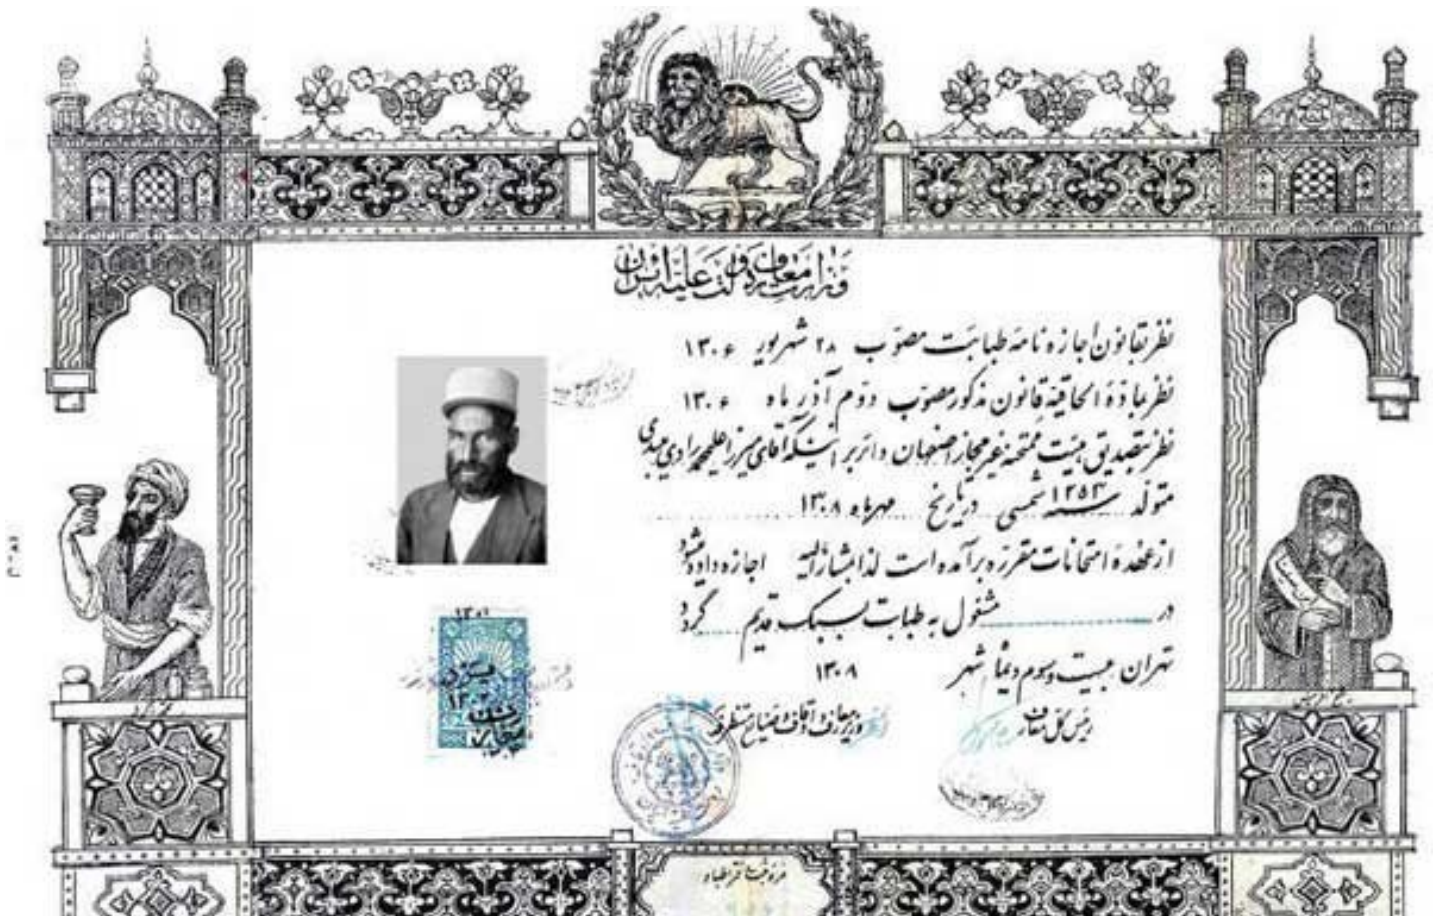 وزارت معارف دولت علیّه ایران
نظر بقانون اجازه نامه طبابت مصوّب ۲۸ شهریور ۱۳۰۶
نظر بمادّهٔ الحاقیّه قانون مذکور مصوّب دوّم آذر ماه ۱۳۰۶
نظر بتصدیق هیئت ممتحنه غیر مجاز اصفهان دائر بر اینکه آقای میرزا علیمحمد مرادی میبدی
متولّد سنه ۱۲۵۳ شمسی در تاریخ مهرماه ۱۳۰۸
از عهدهٔ امتحانات مقرّره برآمده است لذا بمشارالیه اجازه داده میشود
در مشغول به طبابت بسبک قدیم گردد
تهران بیست و سوم دیماه شهر ۱۳۰۸
رئیس کل معارف
وزیر معارف و اوقاف و صنایع مستظرفه